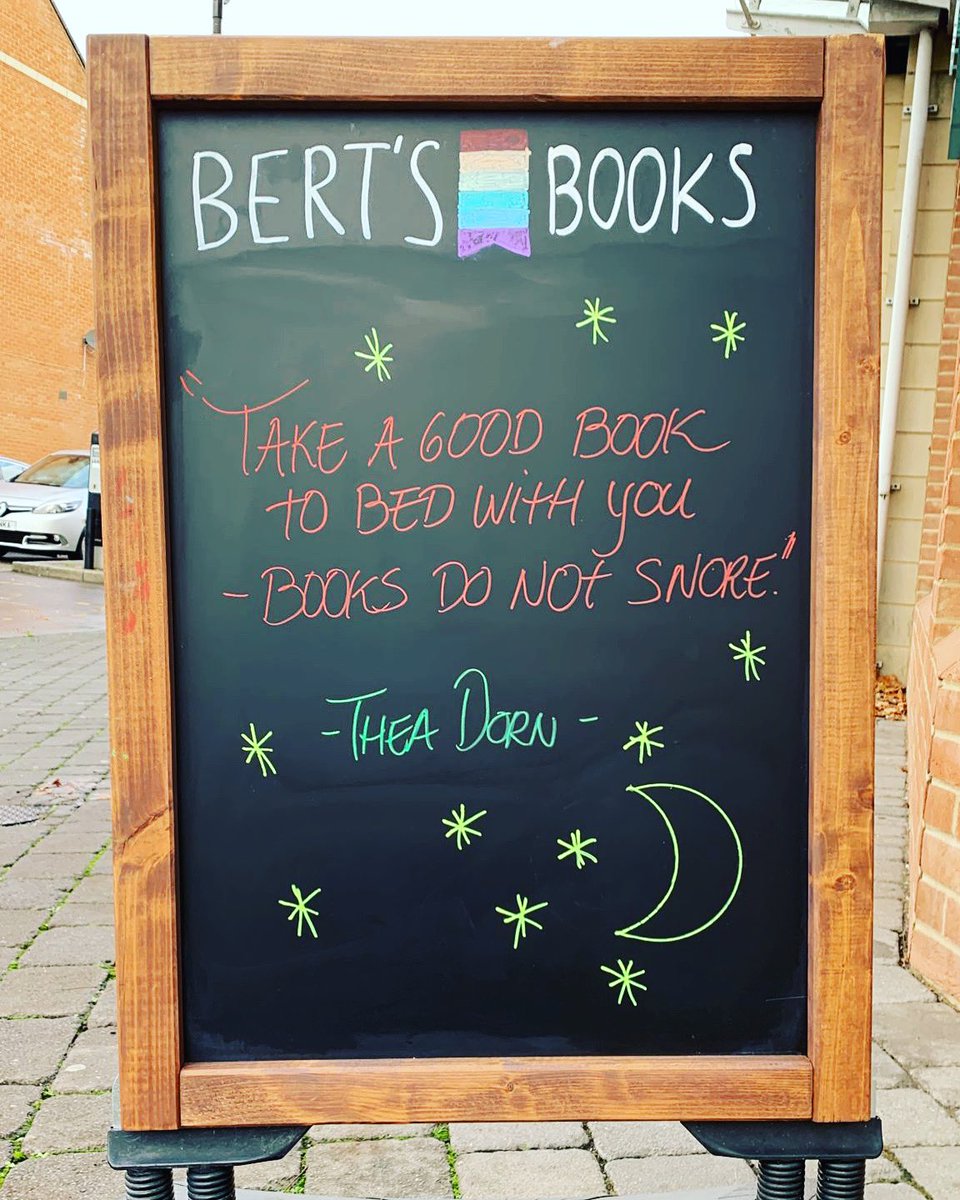 BERT'S BOOKS
"TAKE A GOOD BOOK
TO BED WITH YOU
- BOOKS DO NOT SNORE."
- THEA DORN -